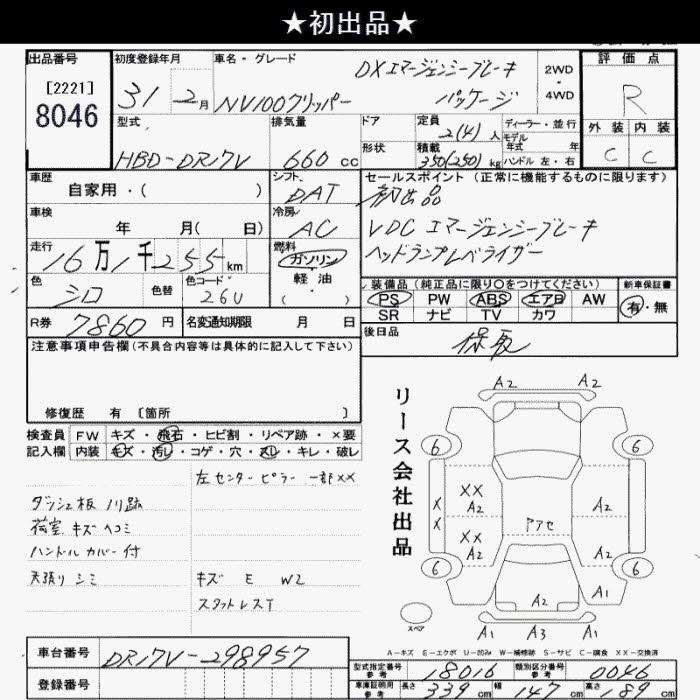 ★初出品★
出品番号
[2221]
8046
初度登録年月
31年2月
車名・グレード
DXエマージェンシーブレーキ
NV100クリッパー パッケージ
2WD
・
4WD
評価点
R
外装 内装
C C
型式
HBD-DR17V
排気量
660cc
ドア
形状
定員
2(4)人
積載
350(250)kg
ディーラー・並行
モデル
年式 年
ハンドル 左・右
車歴
自家用・( )
シフト
DAT
セールスポイント(正常に機能するものに限ります)
初出品
VDC エマージェンシーブレーキ
ヘッドランプレベライザー
車検
年 月( 日)
冷房
AC
走行
16万1千255km
燃料
ガソリン
軽油
( )
色
シロ
色替
色コード
26U
装備品(純正品に限り○をつけてください)
PS PW ABS エアB AW
SR ナビ TV カワ
新車保証書
有・無
R券
7860円
名変通知期限 月 日
後日品
保取
注意事項申告欄(不具合内容等は具体的に記入して下さい)
修復歴 有 〔箇所 〕
検査員
記入欄
FW キズ・飛石・ヒビ割・リペア跡・×要
内装 キズ・汚レ・コゲ・穴・スレ・キレ・破レ
左センターピラー 一部××
ダッシュ板 ノリ跡
荷室 キズ ヘコミ
ハンドルカバー付
天張り シミ
キズ E W2
スタットレスT
リース会社出品
A2 A2
6 6
X
X
XX
A2
XX
A2
アアセ
A2
A2
6 6
A2
A1
A1 A3 A1
スペア
A-キズ E-エクボ U-凹み W-補修跡 S-サビ C-腐食 XX-交換済
車台番号
DR17V-298957
登録番号
型式指定番号
参考
18016
類別区分番号
参考
0046
車庫証明用
参考
長さ 339cm
幅 147cm
高さ 189cm